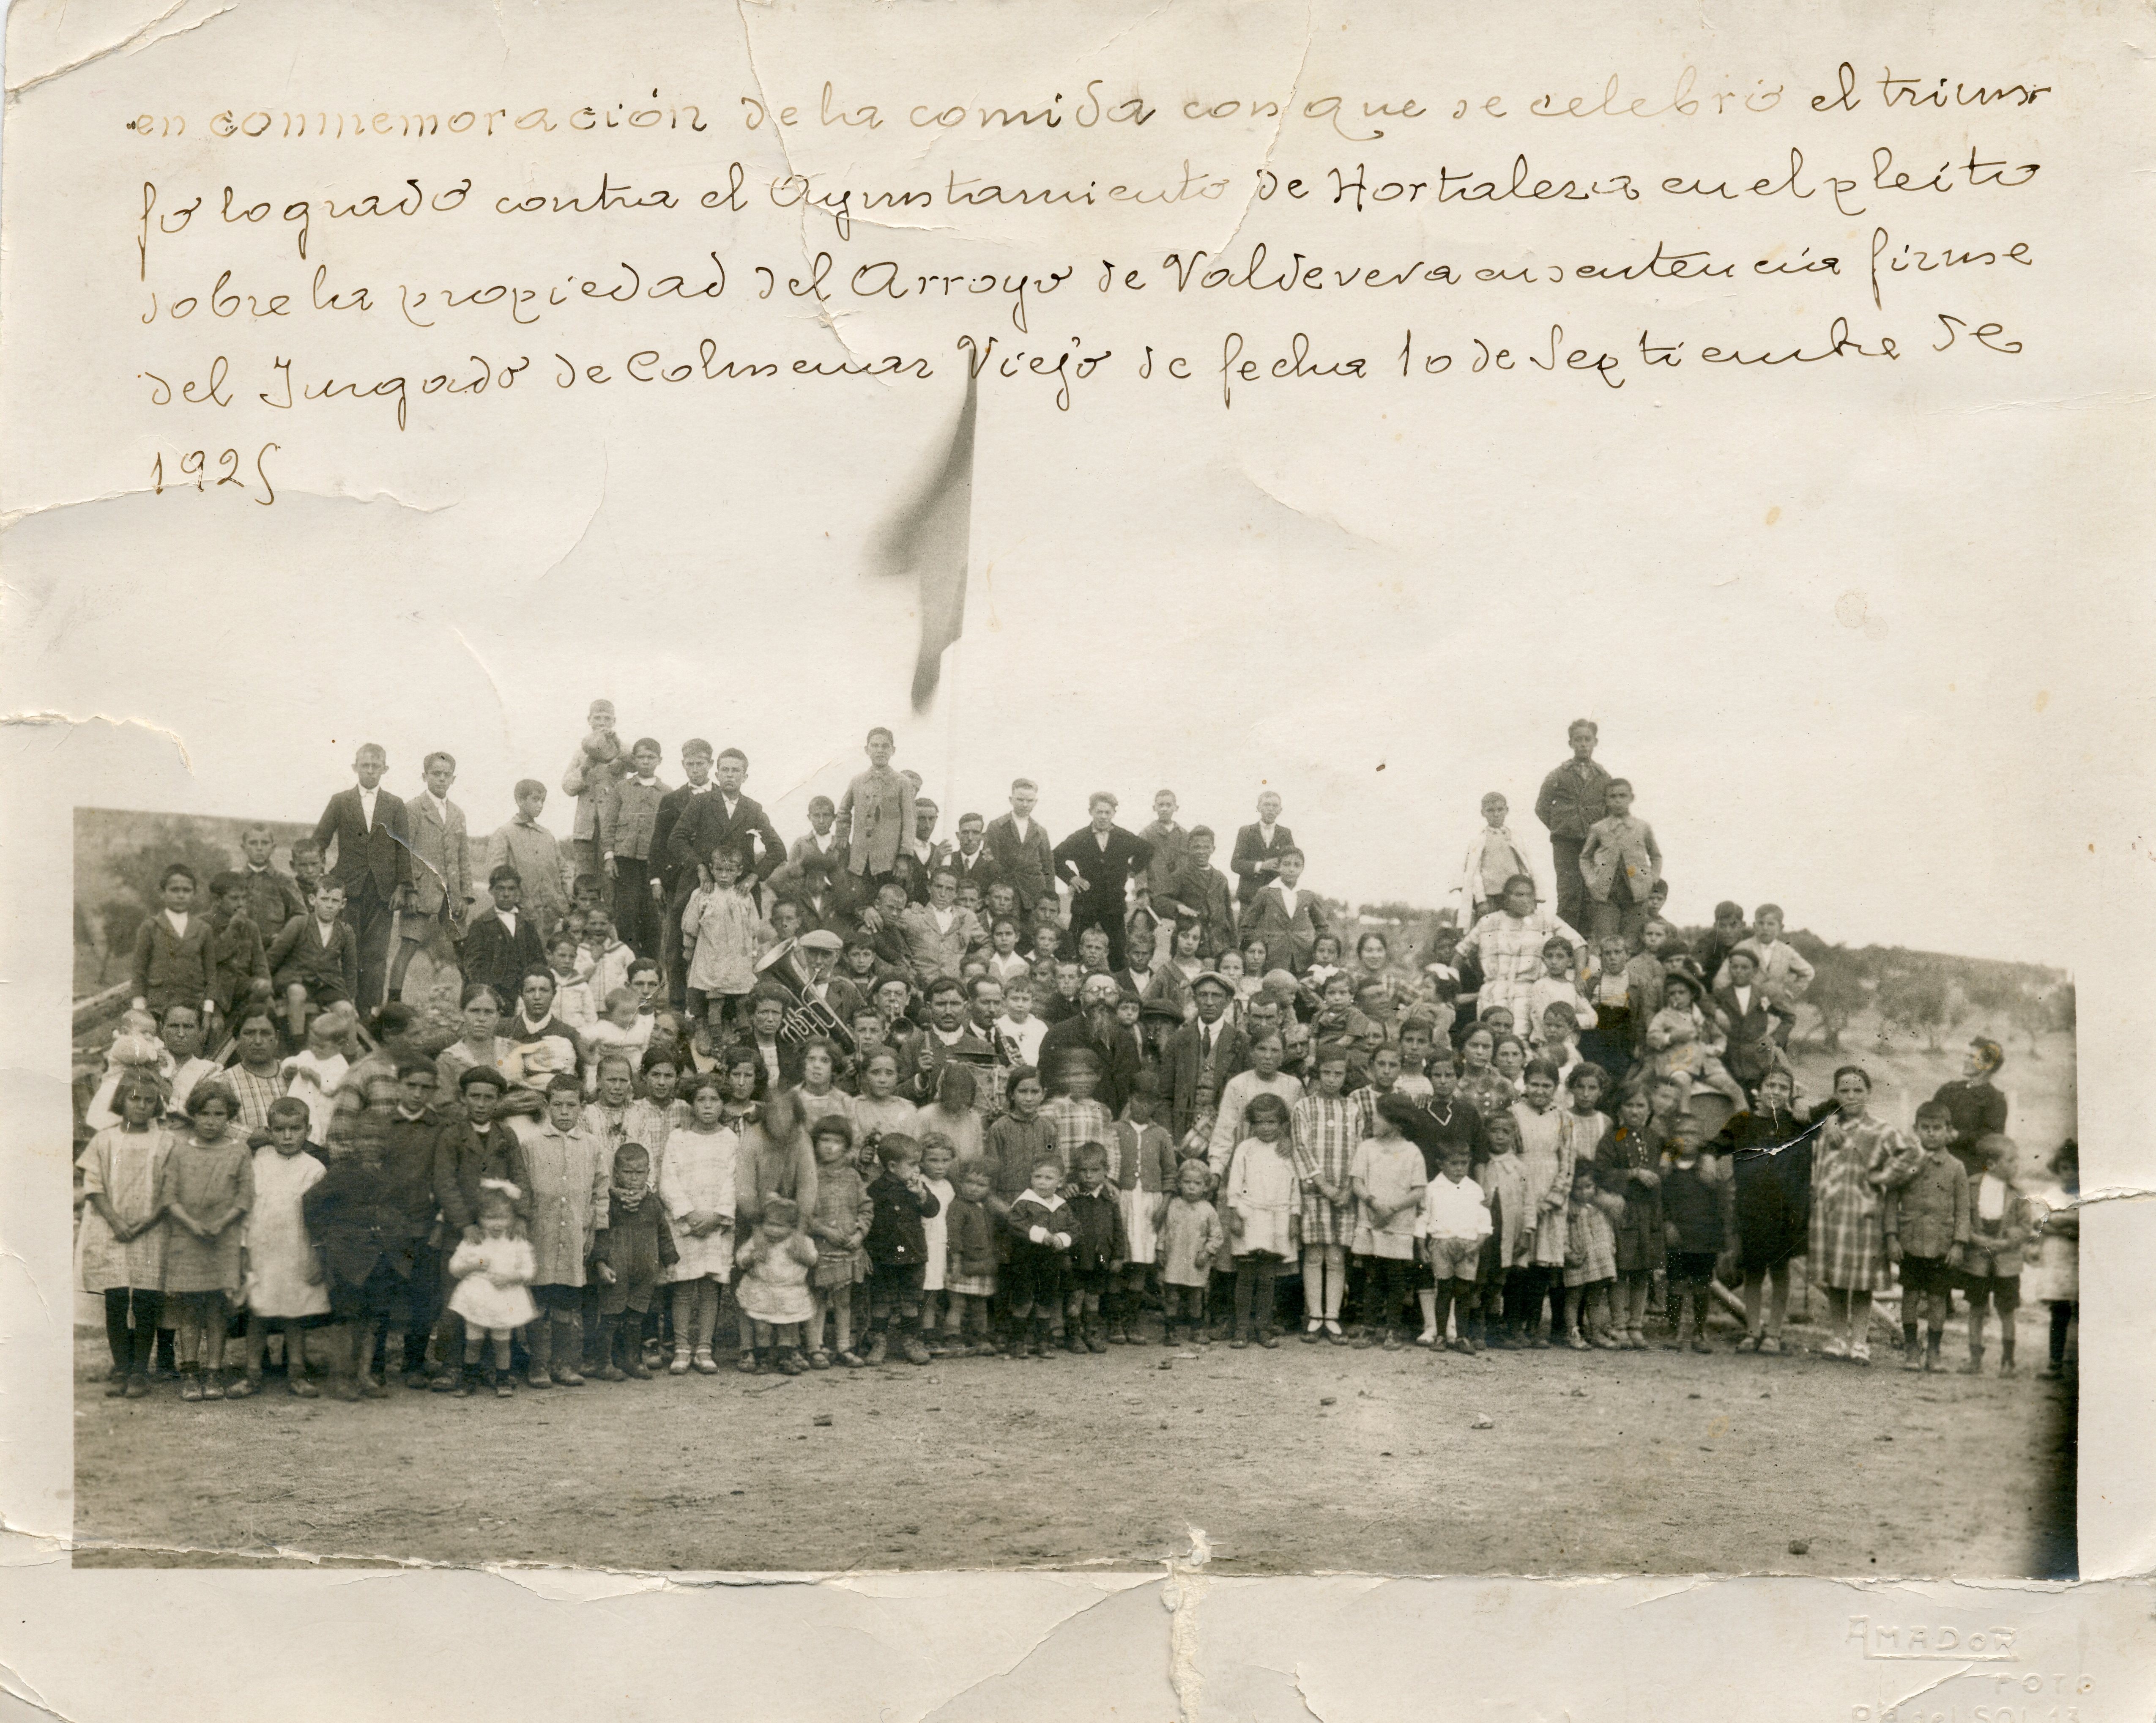 en conmemoración de la comida con que se celebró el triun-
fo logrado contra el Ayuntamiento de Hortaleza en el pleito
sobre la propiedad del Arroyo de Valdeveva en sentencia firme
del Juzgado de Colmenar Viejo de fecha 10 de Septiembre de
1925
AMADOR
FOTO
SOL 13